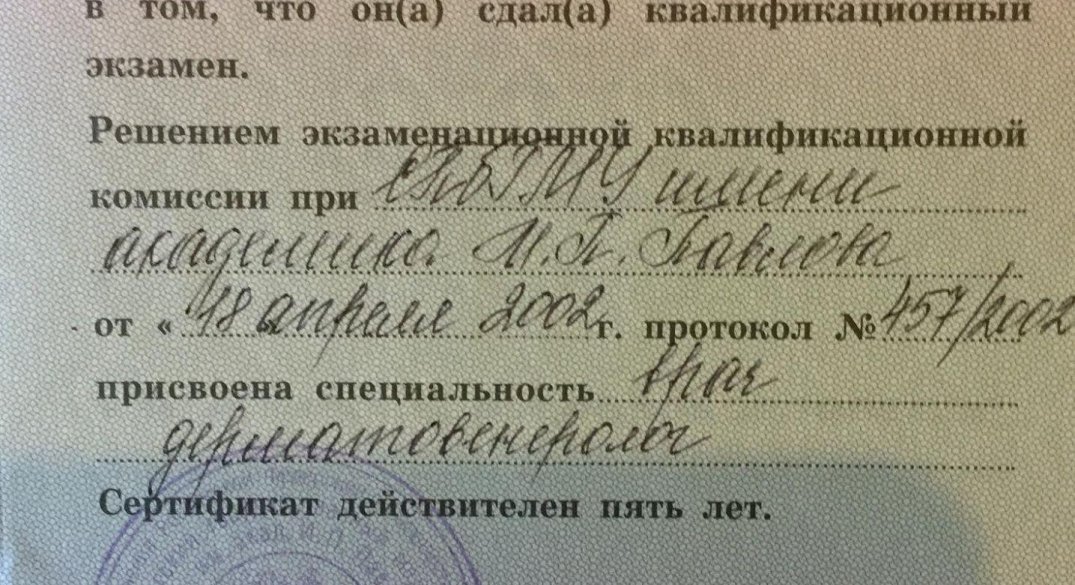 в том, что он(а) сдал(а) квалификационный
экзамен.
Решением экзаменационной квалификационной
комиссии при СПбГМУ имени
академика И.П. Павлова
от « 18 апреля 2002 г. протокол № 457/2002
присвоена специальность врач
дерматовенеролог
Сертификат действителен пять лет.